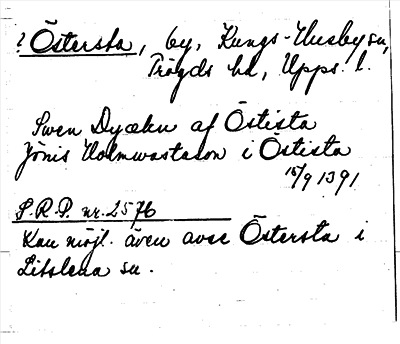 ? Östersta, by, Kungs-Husby sn,
Trögds hd, Upps. l.
Swen Dyækn af Östista
Jönis Holmwastason i Östista
15/9 1391
S.R.P. nr. 2576
Kan möjl. även avse Östersta i
Litslena sn.